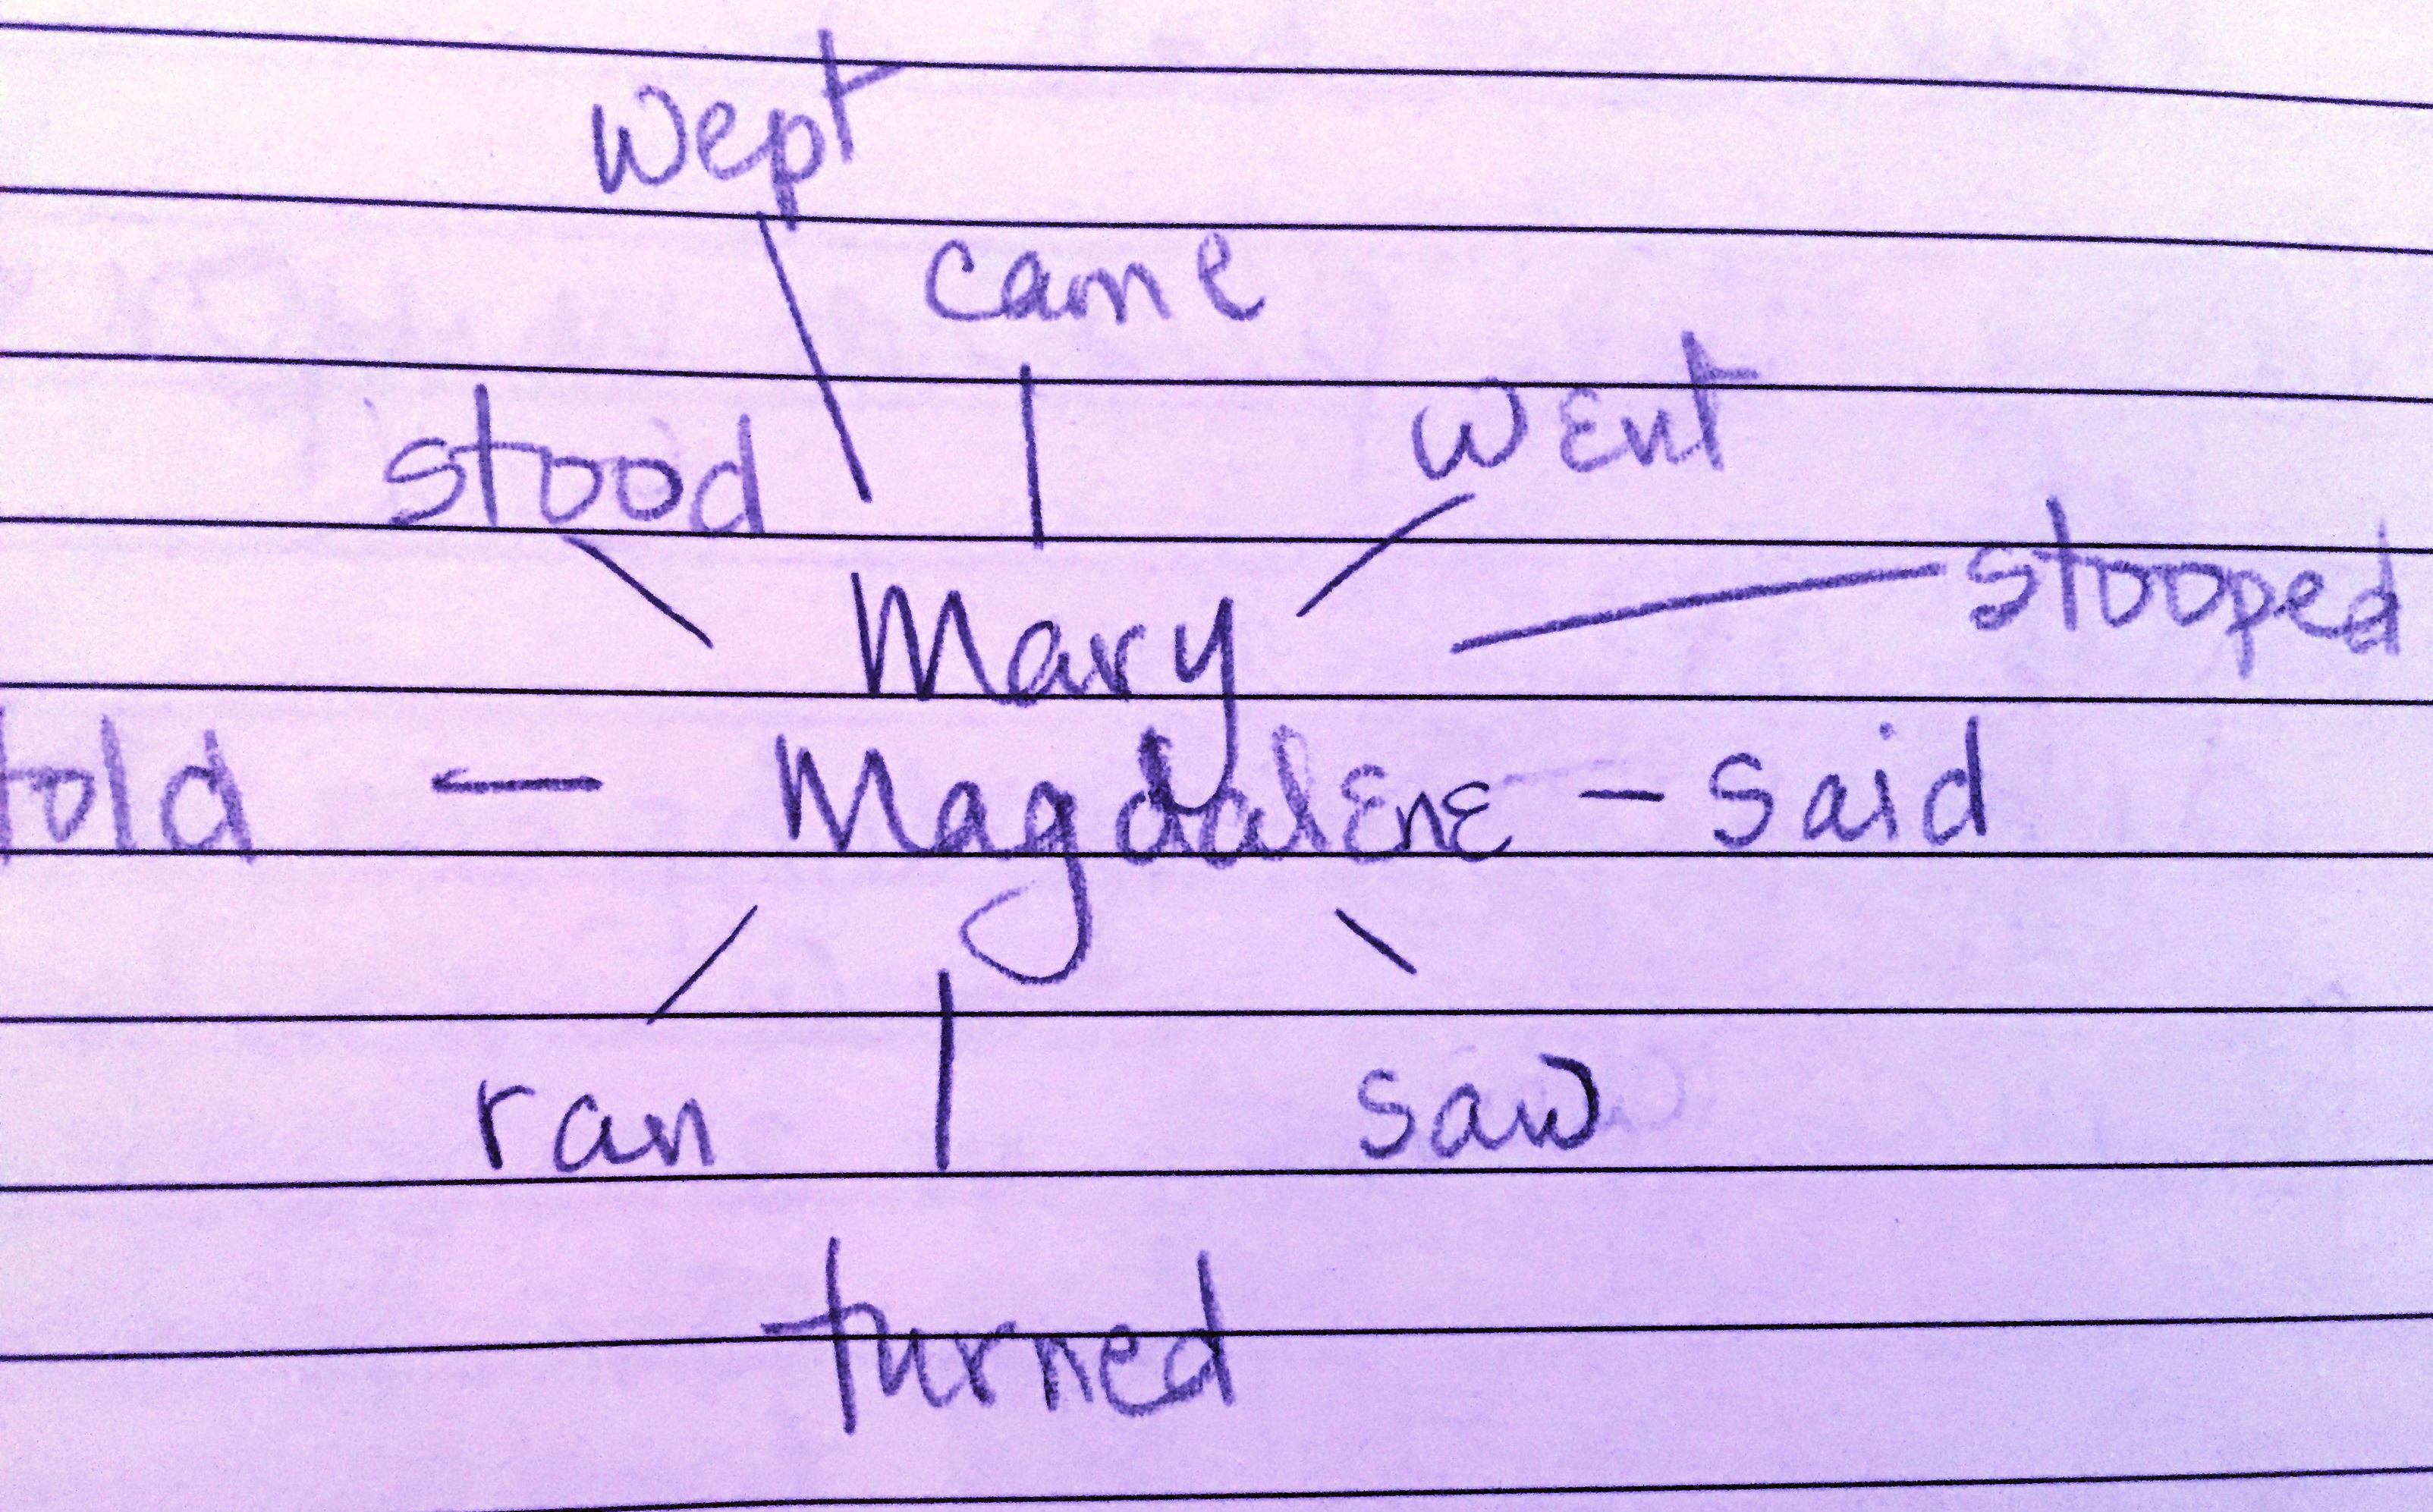 wept
came
stood
went
stooped
Mary
told — Magdalene — said
ran
saw
turned